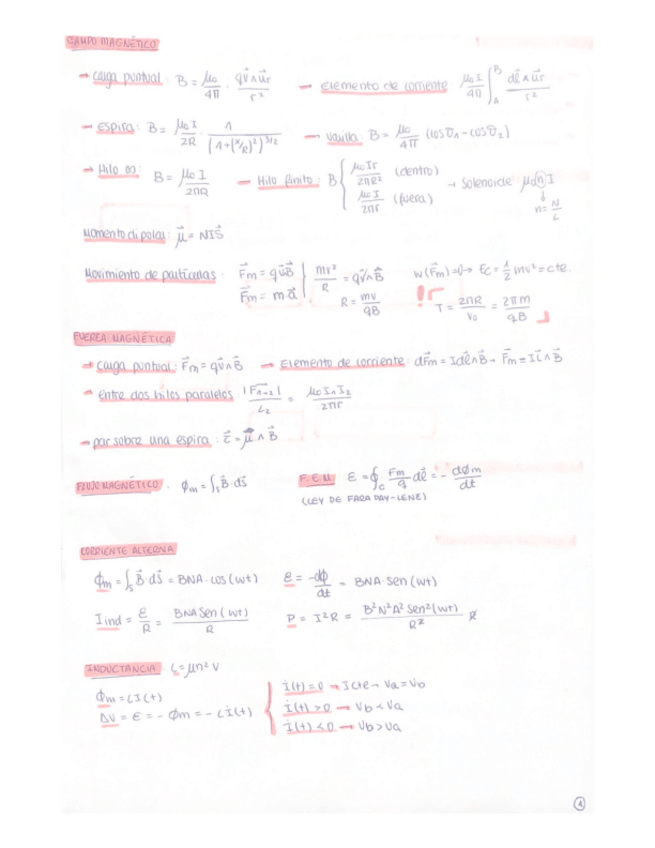 CAMPO MAGNÉTICO
→ carga puntual B = μ₀/4π · qv⃗∧u⃗r/r² → Elemento de corriente μ₀I/4π ∫_A^B dl⃗∧u⃗r/r²
→ ESPIRA: B = μ₀I/2R · 1/(1+(x/R)²)^3/2 → varilla B = μ₀/4π (cosθ₁-cosθ₂)
→ Hilo ∞: B = μ₀I/2πR → Hilo finito: B { μ₀Ir/2πR² (dentro) → Solenoide μ₀nI
μ₀I/2πr (fuera) n = N/L
Momento dipolar: μ⃗ = NIS⃗
Movimiento de partículas: F⃗m = qv⃗B⃗ } mv²/R = qv⃗∧B⃗ W(F⃗m)=0→ Ec = 1/2 mv² = cte.
F⃗m = ma⃗ R = mv/qB T = 2πR/v₀ = 2πm/qB
FUERZA MAGNÉTICA
→ carga puntual: F⃗m = qv⃗∧B⃗ → Elemento de corriente: dF⃗m = Idl⃗∧B⃗ → F⃗m = Il⃗∧B⃗
→ entre dos hilos paralelos |F⃗₁→₂|/L₂ = μ₀I₁I₂/2πr
→ par sobre una espira: τ⃗ = μ⃗∧B⃗
FLUJO MAGNÉTICO. ϕm = ∫s B⃗·ds⃗ F.E.M ε = ∮c Fm/q dl⃗ = - dϕm/dt
(LEY DE FARADAY-LENZ)
CORRIENTE ALTERNA
ϕm = ∫s B⃗·ds⃗ = BNA·cos(wt) ε = -dϕ/dt = BNA·sen(wt)
Iind = ε/R = BNA sen(wt)/R P = I²R = B²N²A² sen²(wt)/R² R
INDUCTANCIA. L = μn²V
ϕm = LI(t)
ΔV = ε = - ϕ̇m = -Lİ(t)
İ(t)=0 → I cte → Va=Vb
İ(t)>0 → Vb<Va
İ(t)<0 → Vb>Va
4